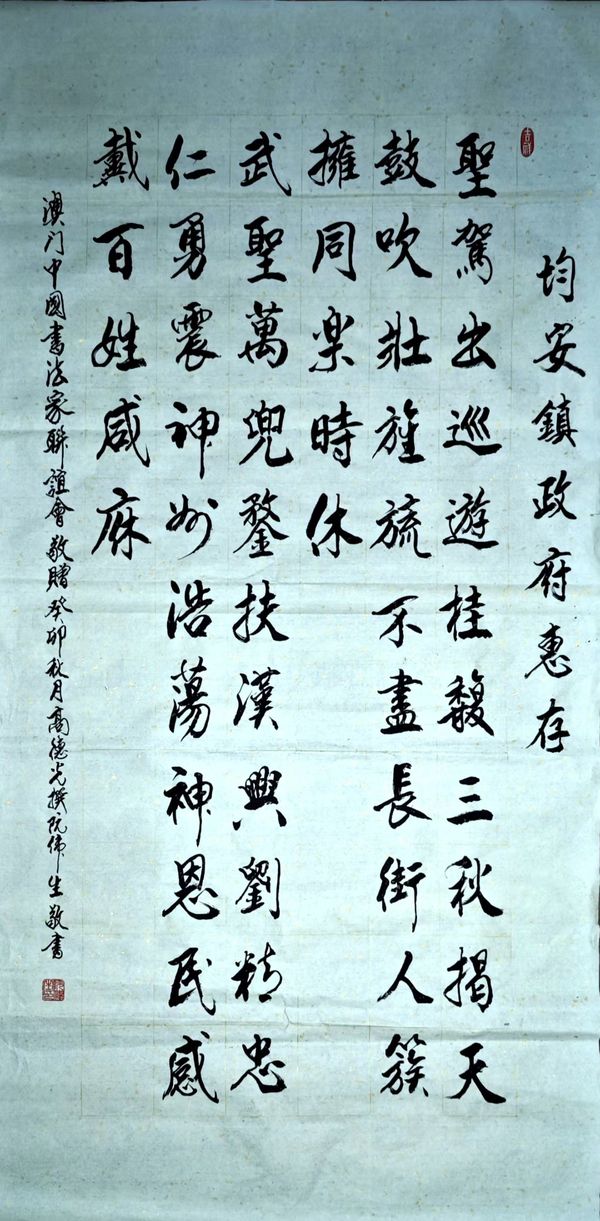 均安鎮政府惠存
聖駕出巡遊桂馥三秋揭天
鼓吹壯旌旒不盡長街人簇
擁同樂時休
武聖萬兜鍪扶漢興劉精忠
仁勇震神州浩蕩神恩民感
戴百姓咸庥
澳门中國書法家聯誼會敬贈癸卯秋月高德光撰阮偉生敬書